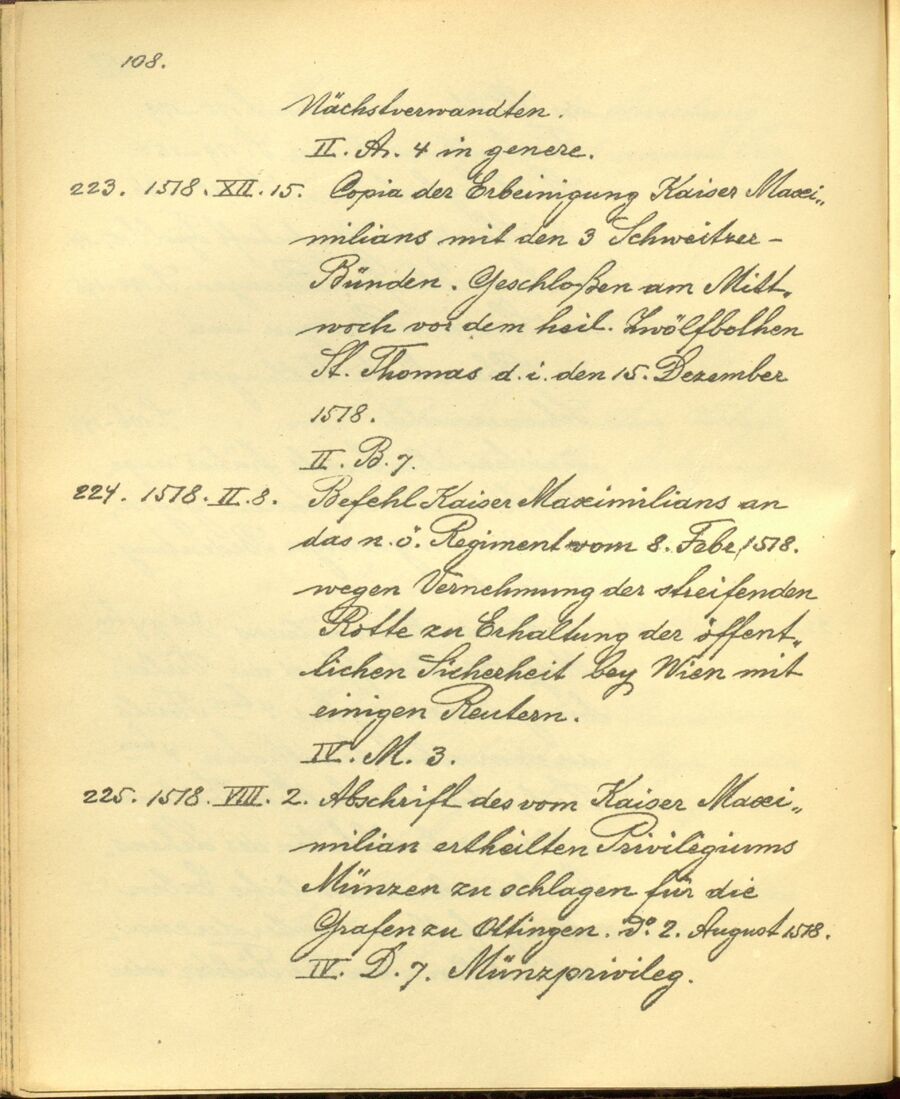 108.
Nächstverwandten.
II. A. 4 in genere.
223. 1518. XII. 15. Copia der Erbeinigung Kaiser Maxi„
milians mit den 3 Schweitzer-
Bünden. Geschloßen am Mitt„
woch vor dem heil. Zwölfbothen
St. Thomas d. i. den 15. Dezember
1518.
II. B. 7.
224. 1518. II. 8. Befehl Kaiser Maximilians an
das n. ö. Regiment vom 8. Febr. 1518.
wegen Vernehmung der streifenden
Rotte zu Erhaltung der öffent„
lichen Sicherheit bey Wien mit
einigen Reutern.
IV. M. 3.
225. 1518. VIII. 2. Abschrift des vom Kaiser Maxi„
milian ertheilten Privilegiums
Münzen zu schlagen für die
Grafen zu Ottingen. do. 2. August 1518.
IV. D. 7. Münzprivileg.